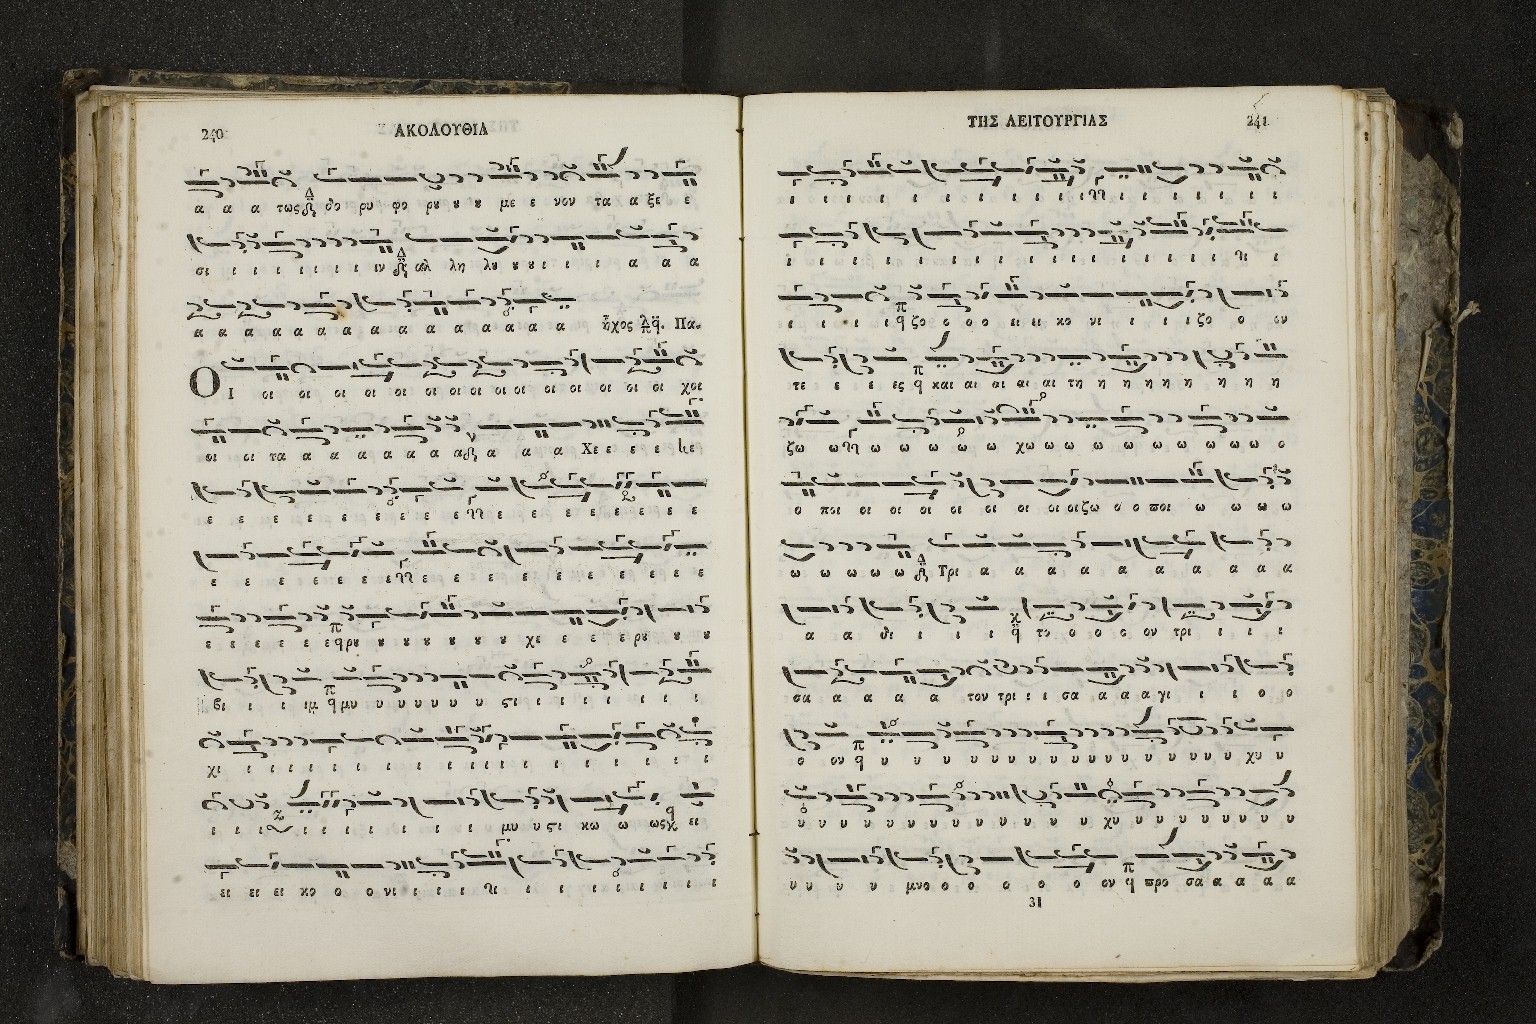 240 ΑΚΟΛΟΥΘΙΑ
α α α τως δο ρυ φο ρȣ ȣ ȣ με ε νον τα α ξε ε
σι ι ι ι ι ι ι ιν αλ λη λȣ ȣ ȣι ι ι α α α
α α α α α α α α α α α α α α α ἦχος Πα.
ΟΙ οι οι οι οι οι οι οι οι οι οι οι οι οι χοι
οι οι τα α α α α α α α α α α Χε ε ε ε ε
ε ε ε ε ε ε ε ε ε ε ε ε ε ε ε ε
ε ε ε ε ε ε ε ε ε ε ε ε ε ε ε ε ε
ε ε ε ε ε ε ρȣ ȣ ȣ ȣ ȣ ȣ ȣ χε ε ε ε ρȣ ȣ ȣ
βι ι ι ιμ μυ υ υ υ υ υ υ ςι ι ι ι ι ι ι
χι ι ι ι ι ι ι ι ι ι ι ι ι ι ι ι ι
ι ι ι ι ι ι ι ι ι ι ι μυ υ ςι κω ω ως ει
ει ει ει κο ο ο νι ι ι ι ι ι ι ι ι ι ι ι
ΤΗΣ ΛΕΙΤΟΥΡΓΙΑΣ 241
ι ι ι ι ι ι ι ι ι ι ι ι ι ι ι ι
ι ι ι ι ι ι ι ι ι ι ι ι ι ι ι ι ι ι
ι ι ι ι ζο ο ο ο ει ει κο νι ι ι ι ι ζο ο ον
τε ε ε ες και αι αι αι αι τη η η η η η η η η
ζω ω ω ω ω ω ω χω ω ω ω ω ω ω ω ω ω ω ο
ο ποι οι οι οι οι οι οι οι οι ζω ο ο ποι ω ω ω ω
ω ω ω ω ω Τρι α α α α α α α α α α
α α δι ι ι ι το ο ο ο ο ον τρι ι ι ι
σα α α α α τον τρι ι ι σα α α α γι ι ι ο ο
ο ον υ υ υ υ υ υ υ υ υ υ υ υ υ υ υ υ χυ υ
υ υ υ υ υ υ υ υ υ υ υ υ υ υ χυ υ υ υ υ υ υ υ υ
υ υ υ υ μνο ο ο ο ο ο ο ον προ σα α α α α
31